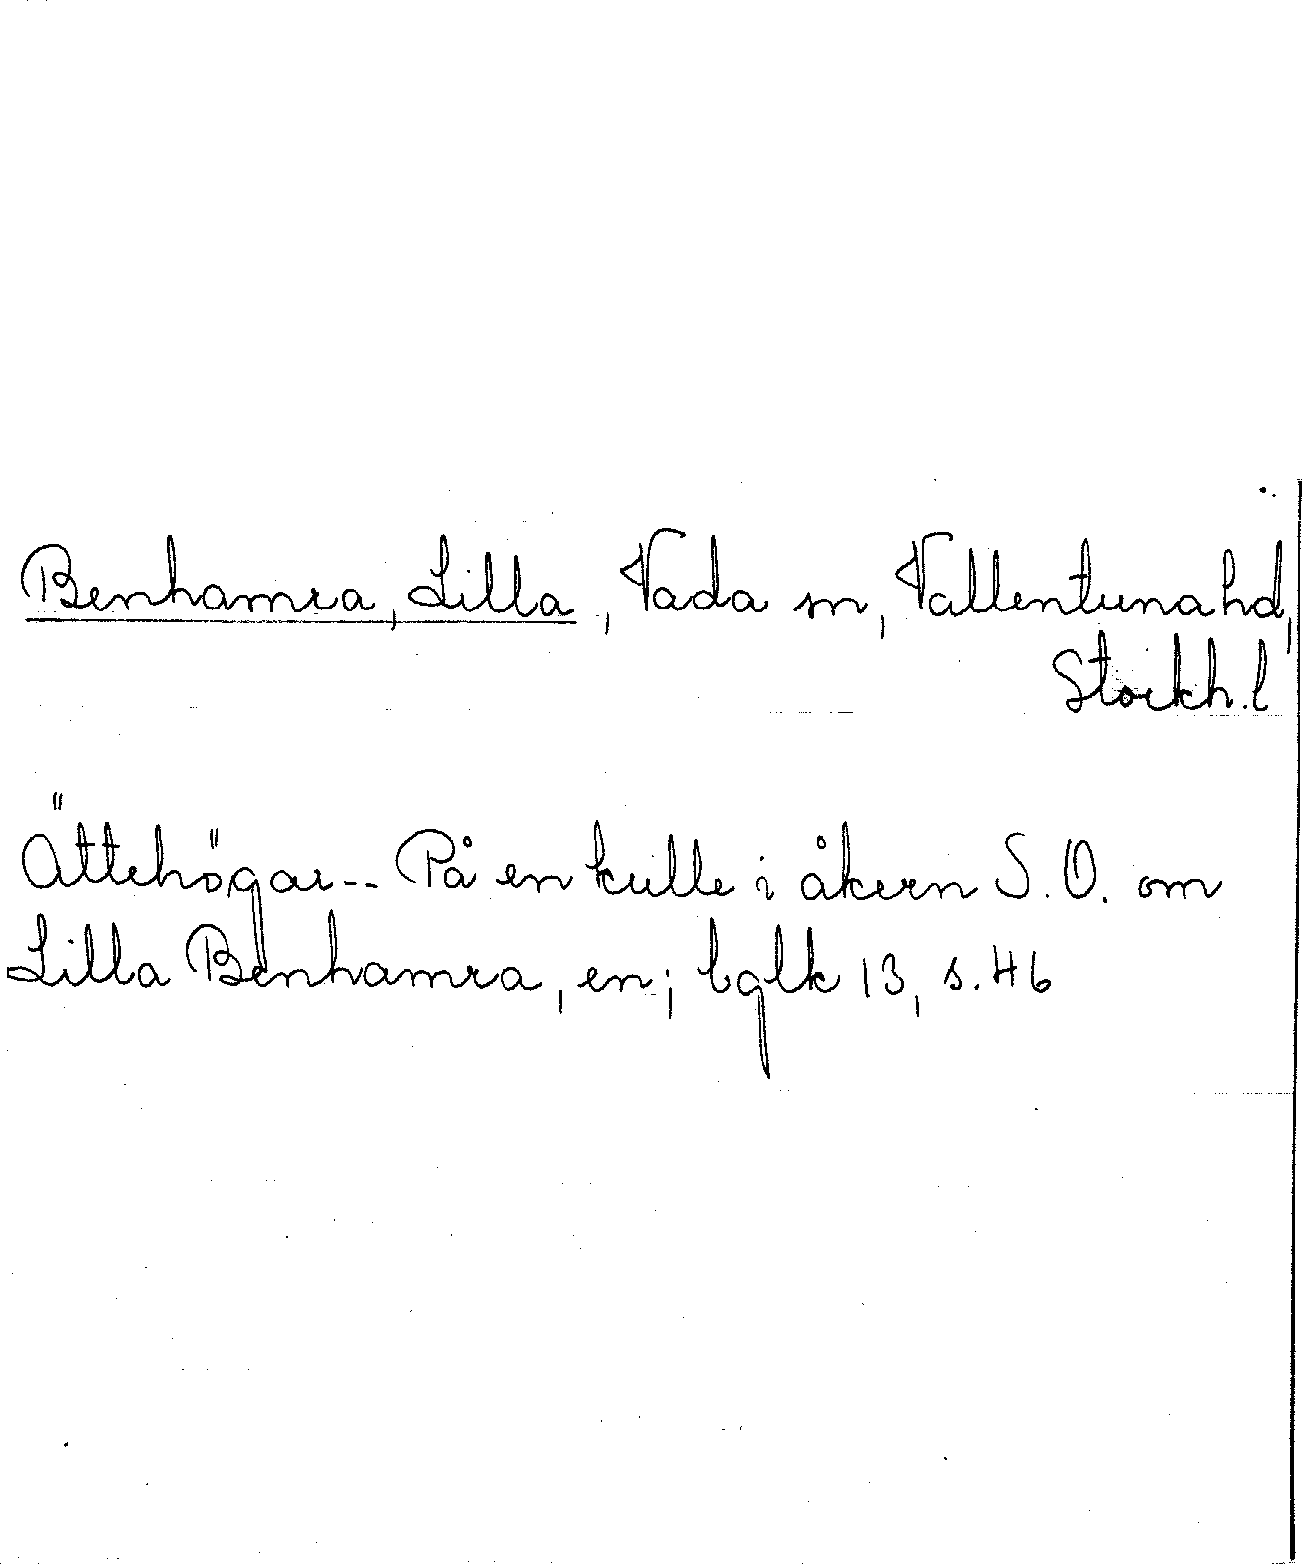 Benhamra, Lilla, Vada sn, Vallentuna hd,
Stockh. l
Ättehögar -- På en kulle i åkern S. O. om
Lilla Benhamra, en; bglk 13, s. 46